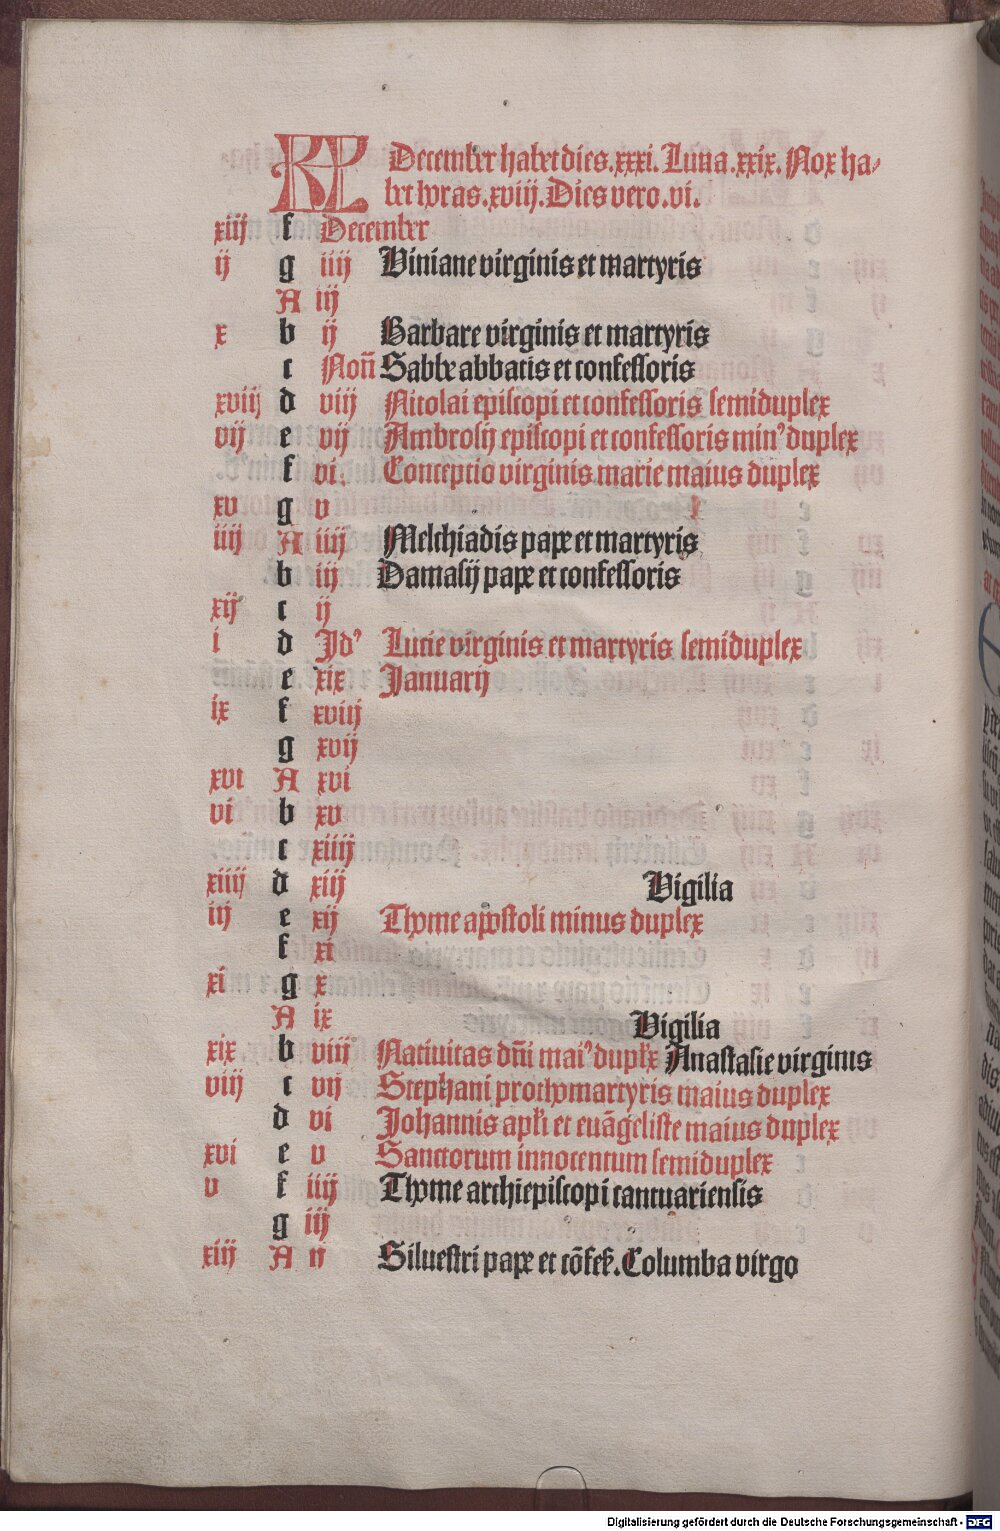 KL December habet dies .xxxi. Luna .xxix. Nox ha-
bet horas .xviij. Dies vero .vi.
xiij f December
ij g iiij Viniane virginis et martyris
A iij
x b ij Barbare virginis et martyris
c Non̄ Sabbe abbatis et confessoris
xviij d viij Nicolai episcopi et confessoris semiduplex
vij e vij Ambrosij episcopi et confessoris min⁹ duplex
f vi. Conceptio virginis marie maius duplex
xv g v
iiij A iiij Melchiadis pape et martyris
b iij Damasij pape et confessoris
xij c ij
i d Jd⁹ Lucie virginis et martyris semiduplex
e xix Januarij
ix f xviij
g xvij
xvi A xvi
vi b xv
c xiiij
xiiij d xiij Vigilia
iij e xij Thome apostoli minus duplex
f xi
xi g x
A ix Vigilia
xix b viij Natiuitas dn̄i mai⁹ duplx Anastasie virginis
viij c vij Stephani prothomartyris maius duplex
d vi Johannis apl̄i et euāgeliste maius duplex
xvi e v Sanctorum innocentum semiduplex
v f iiij Thome archiepiscopi cantuariensis
g iij
xiij A ij Siluestri pape et cōfes̄. Columba virgo
Digitalisierung gefördert durch die Deutsche Forschungsgemeinschaft - DFG